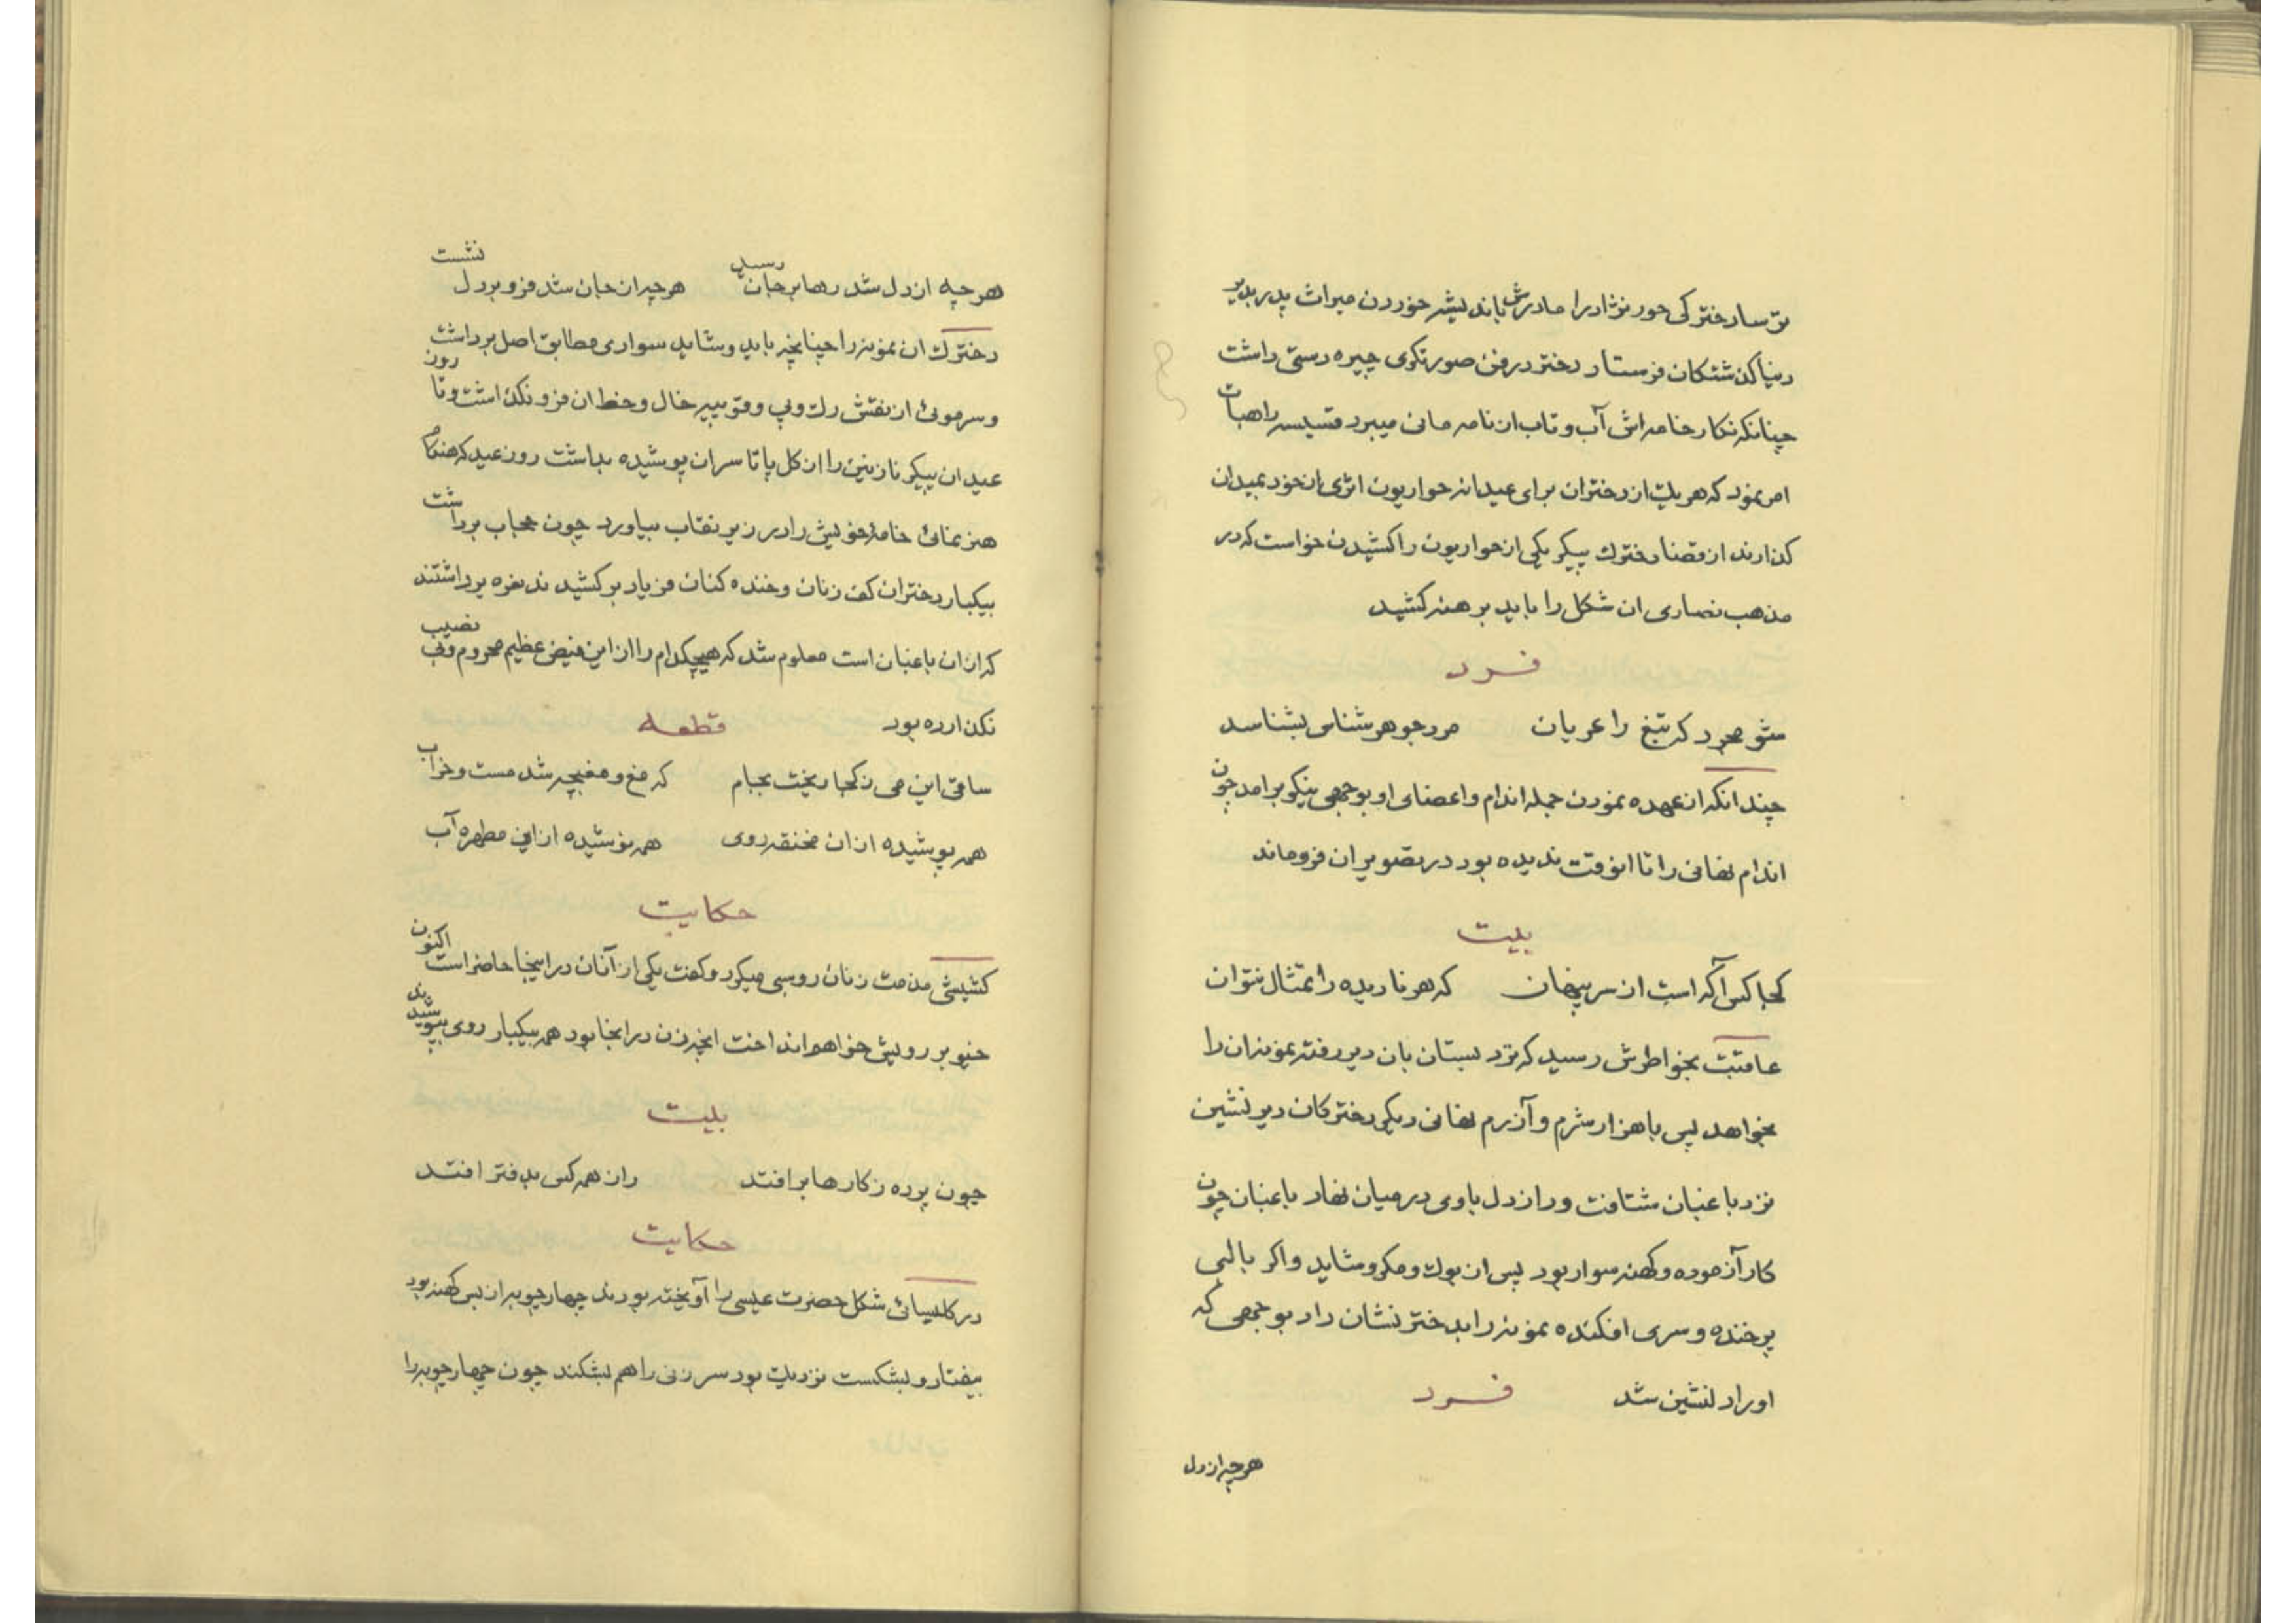 ترسا دخترکی حور نژاد را مادرش باندیشه خوردن میراث پدر بدیر
دنیا گذشتگان فرستاد دختر در فن صورتگری چیره دستی داشت
چنانکه نگار خامه اش آب و تاب از نامه مانی میبرد قسیسه راهبات
امر نمود که هر یک از دختران برای عیدانه حواریون اثری از خود بمیدان
گذارند از قضا دخترک پیکر یکی از حواریون را کشیدن خواست که در
مذهب نصاری ان شکل را باید برهنه کشید
فرد
شو مجرد که تیغ را عریان مرد جوهر شناس بشناسد
چندانکه از عهده نمودن جمله اندام و اعضای او بوجهی نیکو برامد چون
اندام نهانی را تا انوقت ندیده بود در تصویر ان فرو ماند
بیت
کجا کس آگه است از سر پنهان که هر نادیده را تمثال نتوان
عاقبت بخواطرش رسید که نزد بستان بان دیر رفته نمونه ان را
بخواهد پس با هزار شرم و آزرم نهانی دیگر دخترکان دیر نشین
نزد باغبان شتافت و راز دل باوی در میان نهاد باغبان چون
کار آزموده و کهنه سوار بود پس از بوک و مکر و شاید و اگر با لبی
پر خنده و سری افکنده نمونه را بدختر نشان داد بوجهی که
او را دلنشین شد فرد
هر چه از دل
هر چه از دل شد رها بر جان رسید هر چه از جان شد فزو بر دل نشست
دخترک ان نمونه را چنانچه باید و شاید سوادی مطابق اصل برداشت
و سر موئی از نقش رک و پی و قوپیه خال و خط ان فرو نگذاشت و تا روز
عید ان پیکر نازنین را از کل پا تا سر ان پوشیده بداشت روز عید که هنگام
هنر نمائی خامهٔ خویش را در زیر نقاب بیاورد چون حجاب برداشت
بیکبار دختران کف زنان و خنده کنان فریاد بر کشیدند نعره برداشتند
که از ان باغبان است معلوم شد که هیچکدام را از این فیض عظیم محروم و بی نصیب
نگذارده بود قطعه
ساقی این می ز کجا ریخت بجام که مغ و مغبچه شد مست و خراب
همه پوشیده از ان مخنقه روی همه نوشیده از این مطهره آب
حکایت
کشیشی مذمت زنان روسبی میکرد و گفت یکی از آنان در اینجا حاضر است اکنون
خیو بر رویش خواهم انداخت انچه زن در انجا بود همه بیکبار روی بپوشیدند
بیت
چون پرده ز کارها بر افتد راز همه کس بدفتر افتد
حکایت
در کلیسائی شکل حضرت عیسی را آویخته بودند چهار چوبه از بس کهنه بود
بیفتاد و بشکست نزدیک بود سر زنی را هم بشکند چون چهار چوبه را